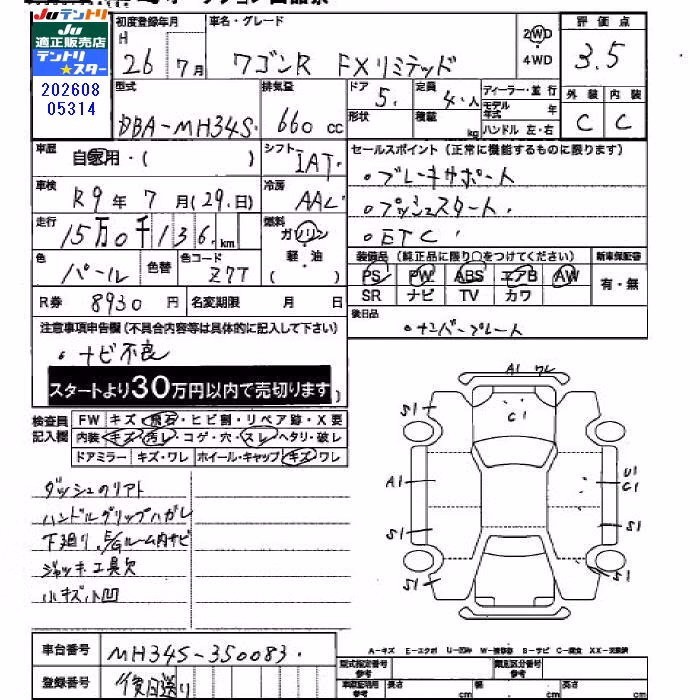 Juテントリ
JU
適正販売店
テントリ
★スター
202608
05314
初度登録年月
H
26 7月
車名・グレード
ワゴンR FXリミテッド
2WD
4WD
評価点
3.5
型式
DBA-MH34S
排気量
660 cc
ドア
5.
定員
4.人
形状
積載
kg
ディーラー・並行
モデル年式 年
ハンドル 左・右
外装 内装
C C
車歴
自家用・( )
シフト
IAT
車検
R9年7月(29.日)
冷房
AAC
走行
15万0千136km
燃料
ガソリン
軽・油
( )
色
パール
色替
色コード
Z7T
R券 8930円
名変期限 月 日
セールスポイント(正常に機能するものに限ります)
・ブレーキサポート
・プッシュスタート.
・ETC
装備品(純正品に限り○をつけてください)
新車保証書
PS PW ABS エアB AW
SR ナビ TV カワ
有・無
後日品
・ナンバープレート
注意事項申告欄(不具合内容等は具体的に記入して下さい)
・ナビ不良
スタートより30万円以内で売切ります
検査員
記入欄
FW キズ・飛石・ヒビ割・リペア跡・X要
内装 キズ・汚レ・コゲ・穴・スレ・ヘタリ・破レ
ドアミラー キズ・ワレ ホイール・キャップ キズ・ワレ
ダッシュのリアト
ハンドルグリップハガレ
下廻り、E/Gルーム内サビ
ジャッキ工具欠
小キズ小凹
A1 ワレ
C1
S1
S1
A1
U1
C1
S1
S1
S1
S1
A-キズ E-エクボ U-凹み W-補修跡 S-サビ C-腐食 XX-交換済
車台番号 MH34S-350083.
登録番号 後日送り
型式指定番号
参考
類別区分番号
参考
車輌証明用
参考
長さ cm
幅 cm
高さ cm